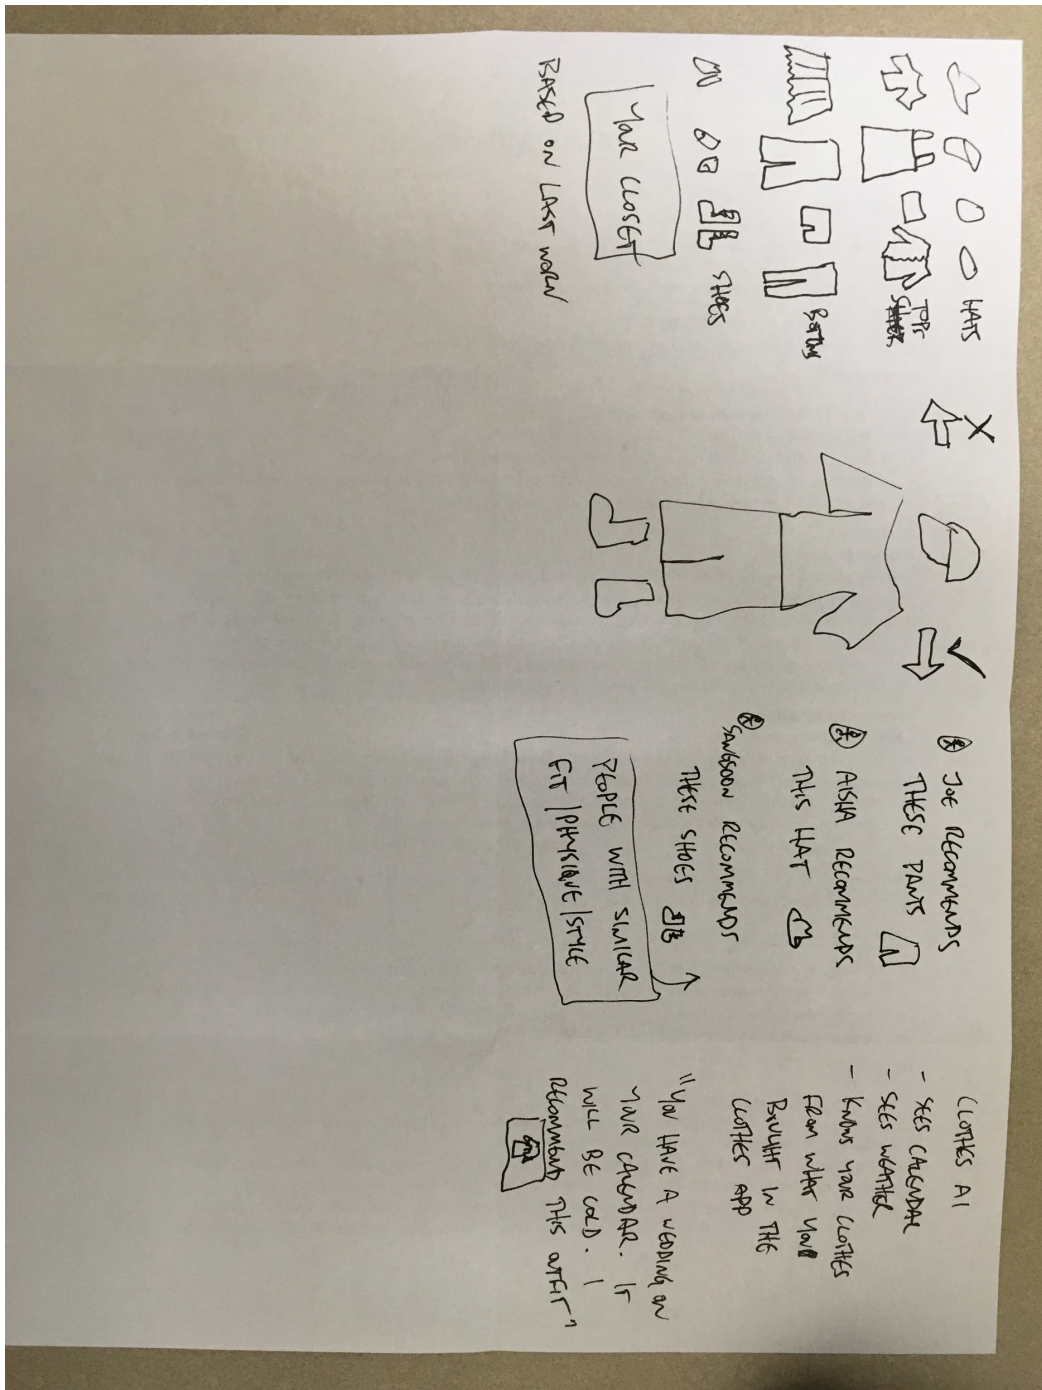 HATS
TOPS
BOTTOMS
SHOES
YOUR CLOSET
BASED ON LAST WORN
X
✓
JOE RECOMMENDS
THESE PANTS
AISHA RECOMMENDS
THIS HAT
SANGSOON RECOMMENDS
THESE SHOES
PEOPLE WITH SIMILAR
FIT/PHYSIQUE/STYLE
CLOTHES AI
- SEES CALENDAR
- SEES WEATHER
- KNOWS YOUR CLOTHES
FROM WHAT YOU
BOUGHT IN THE
CLOTHES APP
"YOU HAVE A WEDDING ON
YOUR CALENDAR. IT
WILL BE COLD. I
RECOMMEND THIS OUTFIT"